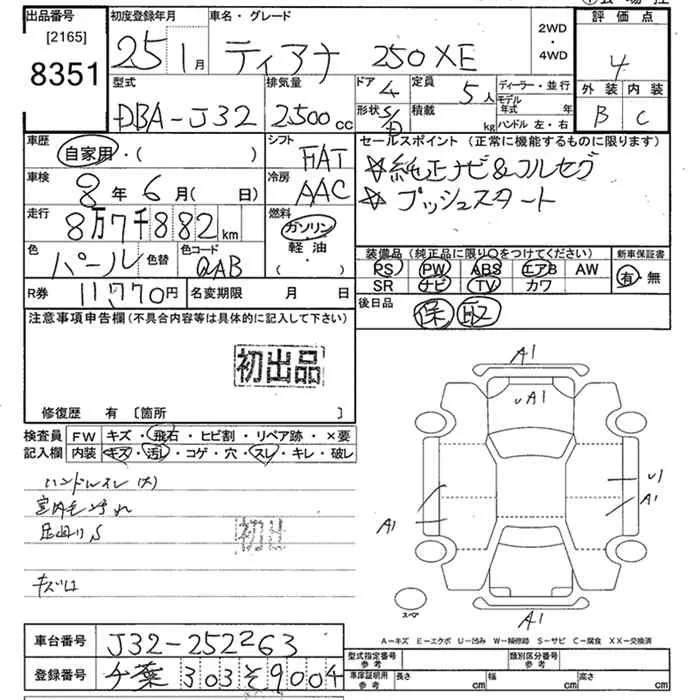 出品番号
[2165]
8351
初度登録年月
25 1月
車名・グレード
ティアナ 250XE
2WD
・
4WD
評価点
4
外装 内装
B C
型式
DBA-J32
排気量
2500cc
ドア 4
形状 S/
定員 5人
積載 kg
ディーラー・並行
モデル年式 年
ハンドル 左・右
車歴
自家用・( )
シフト
FAT
冷房
AAC
セールスポイント (正常に機能するものに限ります)
☆純正ナビ&フルセグ
☆プッシュスタート
車検
8年 6月( 日)
走行
8万7千882km
燃料
ガソリン
軽油
( )
色
パール
色替
色コード
QAB
装備品 (純正品に限り○をつけてください)
PS PW ABS エアB AW
SR ナビ TV カワ
新車保証書
有・無
R券 11,770円
名変期限 月 日
後日品
保 取
注意事項申告欄 (不具合内容等は具体的に記入して下さい)
初出品
修復歴 有 〔箇所 〕
検査員
記入欄
FW キズ・飛石・ヒビ割・リペア跡・×要
内装 キズ・汚レ・コゲ・穴・スレ・キレ・破レ
ハンドルスレ(大)
室内毛汚れ
足廻りS
A1
UA1
U1
A1
A1
A1
スペア
A-キズ E-エクボ U-凹み W-補修跡 S-サビ C-腐食 XX-交換済
車台番号 J32-252263
登録番号 千葉 303 そ 9004
型式指定番号 参考
類別区分番号 参考
車庫証明用 参考
長さ cm
幅 cm
高さ cm